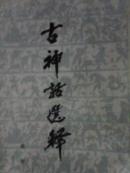 古神話選釋